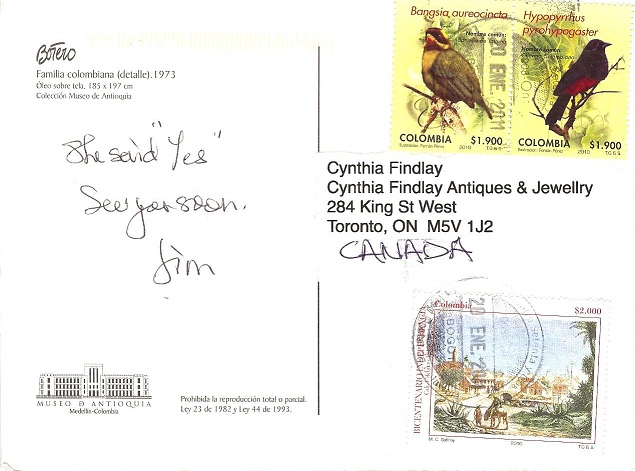 Botero
Familia colombiana (detalle).1973
Óleo sobre tela, 185 x 197 cm
Colección Museo de Antioquia
She said "Yes"
See you soon.
Jim
MUSEO D ANTIOQUIA
Medellín-Colombia
Prohibida la reproducción total o parcial.
Ley 23 de 1982 y Ley 44 de 1993.
Bangsia aureocincta
Nombre común:
COLOMBIA $1.900
2010
T.G.& S.
Hypopyrrhus
pyrohypogaster
Nombre común:
COLOMBIA $1.900
2010
T.G.& S.
20 ENE. 2011
Cynthia Findlay
Cynthia Findlay Antiques & Jewellry
284 King St West
Toronto, ON M5V 1J2
CANADA
Colombia $2.000
20 ENE.
2010
T.G.& S.